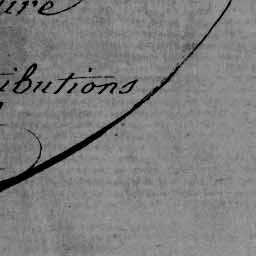 ure
ibutions